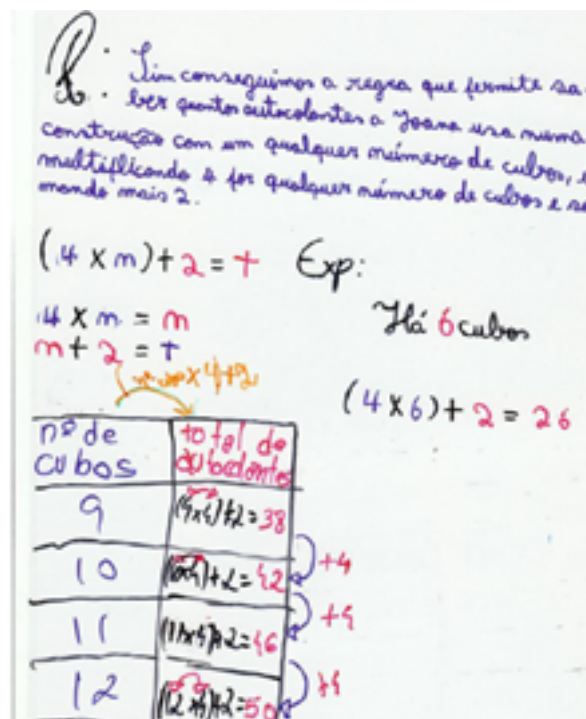 R: Sim conseguimos a regra que permite sa-
ber quantos autocolantes a Joana usa numa
construção com um qualquer número de cubos, é
multiplicando 4 por qualquer número de cubos e so
mando mais 2.
(4 x n) + 2 = t
Exp:
4 x n = n
n + 2 = t
Há 6 cubos
x 4 + 2
(4 x 6) + 2 = 26
nº de cubos total de autocolantes
9 (9x4)+2=38
+4
10 (10x4)+2=42
+4
11 (11x4)+2=46
+4
12 (12x4)+2=50